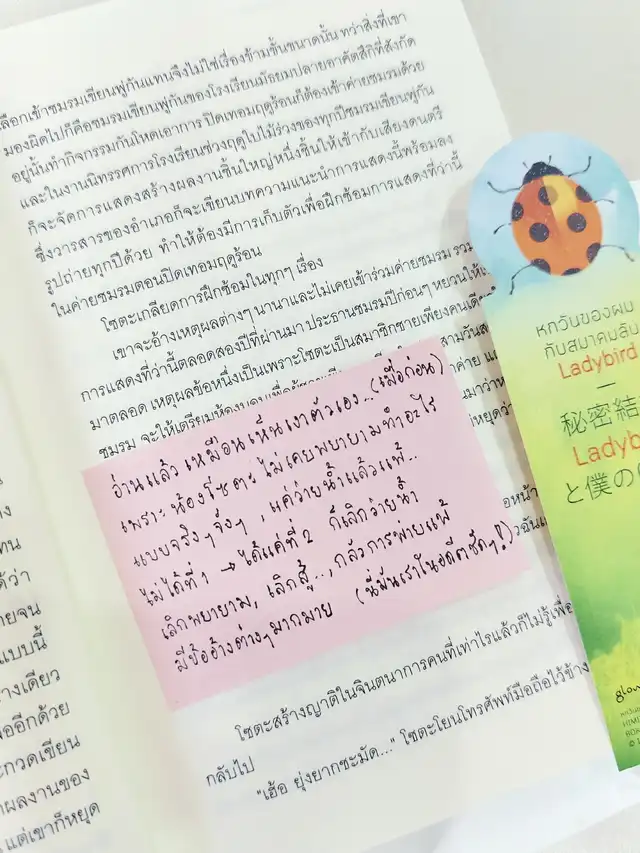 ลือกเข้าชมรมเขียนพู่กันแทนจึงไม่ใช่เรื่องข้ามขั้นขนาดนั้น ทว่าสิ่งที่เขา
มองผิดไปก็คือชมรมเขียนพู่กันของโรงเรียนมัธยมปลายอาคัตสึกิที่สังกัด
อยู่นั้นทำกิจกรรมกันโหดเอาการ ปิดเทอมฤดูร้อนก็ต้องเข้าค่ายชมรมด้วย
และในงานนิทรรศการโรงเรียนช่วงฤดูใบไม้ร่วงของทุกปีชมรมเขียนพู่กัน
ก็จะจัดการแสดงสร้างผลงานชิ้นใหญ่หนึ่งชิ้นให้เข้ากับเสียงดนตรี
ซึ่งวารสารของอำเภอก็จะเขียนบทความแนะนำการแสดงนี้พร้อมลง
รูปถ่ายทุกปีด้วย ทำให้ต้องมีการเก็บตัวเพื่อฝึกซ้อมการแสดงที่ว่านี้
ในค่ายชมรมตอนปิดเทอมฤดูร้อน
โซตะเกลียดการฝึกซ้อมในทุกๆ เรื่อง
เขาจะอ้างเหตุผลต่างๆ นานาและไม่เคยเข้าร่วมค่ายชมรม รวม
การแสดงที่ว่านี้ตลอดสองปีที่ผ่านมา ประธานชมรมปีก่อนๆ หยวนให้เ
มาตลอด เหตุผลข้อหนึ่งเป็นเพราะโซตะเป็นสมาชิกชายเพียงคนเดีย
ชมรม จะให้เตรียมห้อง
สามวันส
ค่าย แ
อ่านแล้ว เหมือนเห็นเงาตัวเอง...(เมื่อก่อน)
เพราะน้องโซตะ ไม่เคยพยายามทำอะไร
แบบจริงๆจังๆ , แค่ว่ายน้ำแล้วแพ้..
ไม่ได้ที่ 1 → ได้แค่ที่ 2 ก็เลิกว่ายน้ำ
เลิกพยายาม, เลิกสู้..., กลัวการพ่ายแพ้
มีข้ออ้างต่างๆมากมาย (นี่มันเราในอดีตชัดๆ!!)
โซตะสร้างญาติในจินตนาการคนที่เท่าไรแล้วก็ไม่รู้เพื่อ
กลับไป
"เฮ้อ ยุ่งยากชะมัด..." โซตะโยนโทรศัพท์มือถือไว้ข้าง
ทน
ด้ว่า
ายจน
แบบนี้
างเดียว
ออีกด้วย
ะกวดเขียน
าผลงานของ
แต่เขาก็หยุด
หกวันของผม
กับสมาคมลับ
Ladybird
秘密結
Ladyb
と僕の
glow